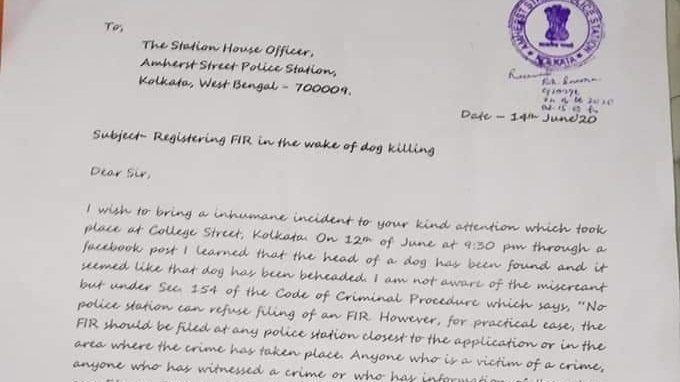 To,
The Station House Officer,
Amherst Street Police Station,
Kolkata, West Bengal - 700009.
AMHERST STREET POLICE STATION
KOLKATA
Received
Date - 14th June'20
Subject- Registering FIR in the wake of dog killing
Dear Sir,
I wish to bring a inhumane incident to your kind attention which took
place at College Street, Kolkata. On 12th of June at 9:30 pm through a
facebook post I learned that the head of a dog has been found and it
seemed like that dog has been beheaded. I am not aware of the miscreant
but under Sec. 154 of the Code of Criminal Procedure which says, "No
police station can refuse filing of an FIR. However, for practical ease, the
FIR should be filed at any police station closest to the application or in the
area where the crime has taken place. Anyone who is a victim of a crime,
anyone who has witnessed a crime or who has information of